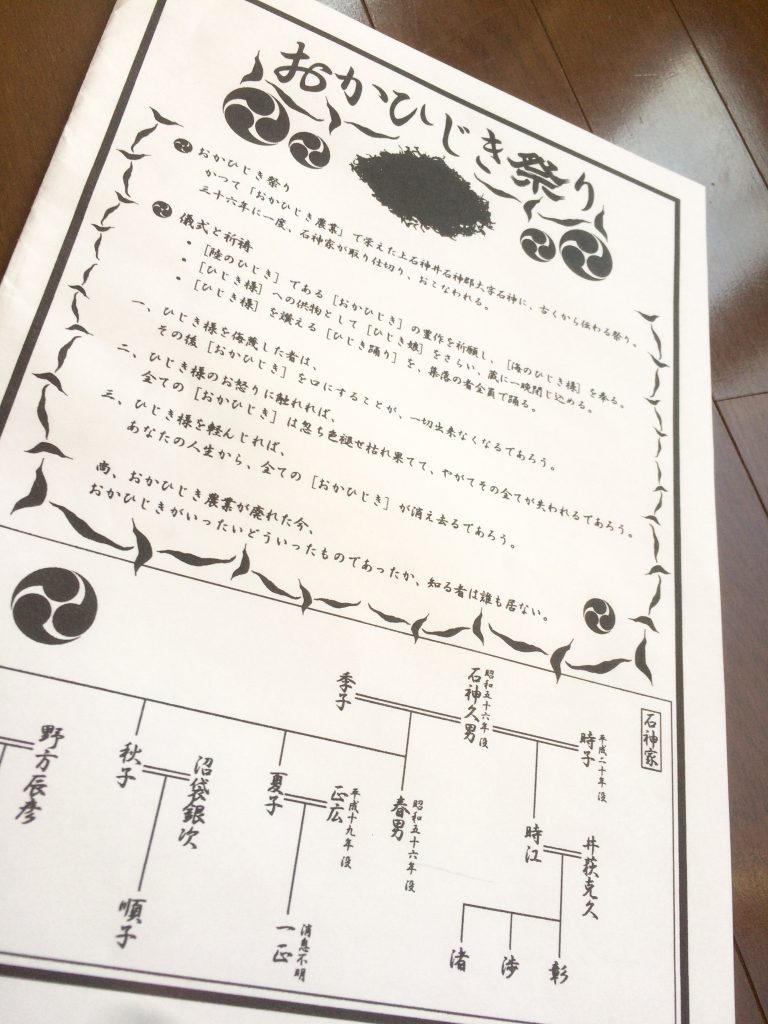 おかひじき祭り
おかひじき祭り
かつて「おかひじき農業」で栄えた上石神井石神郡大字石神に、古くから伝わる祭り。
三十六年に一度、石神家が取り仕切り、おこなわれる。
儀式と祈祷
・［陸のひじき］である［おかひじき］の豊作を祈願し、［海のひじき様］を奉る。
・［ひじき様］への供物として［ひじき娘］をさらい、蔵に一晩閉じ込める。
・［ひじき様］を構える［ひじき踊り］を、集落の者全員で踊る。
一、ひじき様を侮蔑した者は、
その後［おかひじき］を口にすることが、一切出来なくなるであろう。
二、ひじき様のお怒りに触れれば、
全ての［おかひじき］は忽ち色褪せ枯れ果てて、やがてその全てが失われるであろう。
三、ひじき様を軽んじれば、
あなたの人生から、全ての［おかひじき］が消え去るであろう。
尚、おかひじき農業が廃れた今、
おかひじきがいったいどういったものであったか、知る者は誰も居ない。
石神家
平成二十年没
時子
昭和五十六年没
石神久男
季子
井荻克久
時江
昭和五十六年没
春男
平成十九年没
正広
夏子
沼袋銀次
秋子
野方辰彦
彰
渉
渚
消息不明
一正
順子